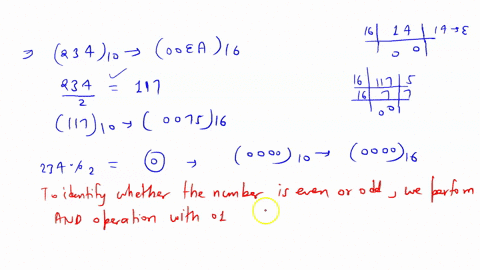 ⇒ (234)10 → (00EA)16
234/2 = 117
(117)10 → (0075)16
234 % 2 = 0 → (0000)10 → (0000)16
To identify whether the number is even or odd, we perform
AND operation with 01
16 | 14 | 14→E
0 0
16 | 117 | 5
16 | 7 | 7
0 0